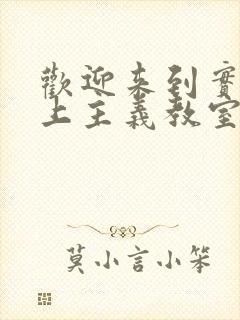 歡迎來到實
上主義教室
莫小言小笨